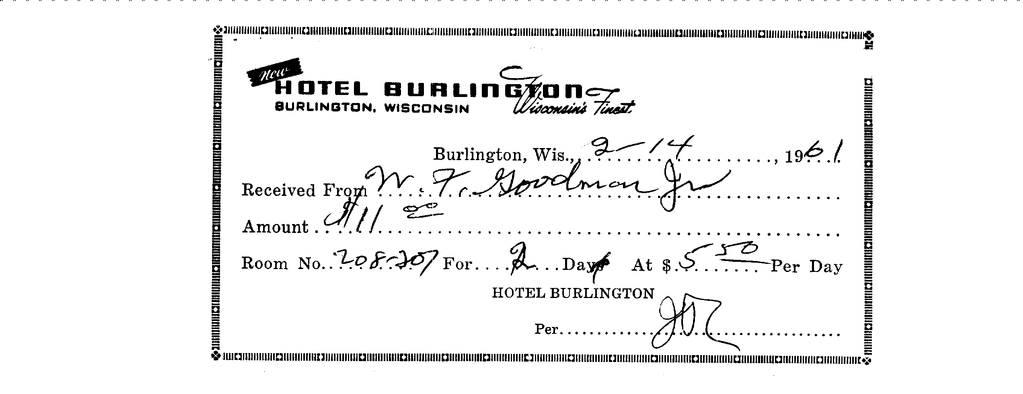 New
HOTEL BURLINGTON
BURLINGTON, WISCONSIN Wisconsin's Finest.
Burlington, Wis., 2-14, 1961
Received From W. F. Goodman Jr
Amount $11 00
Room No. 208-207 For 2 Days At $ 5 50 Per Day
HOTEL BURLINGTON
Per